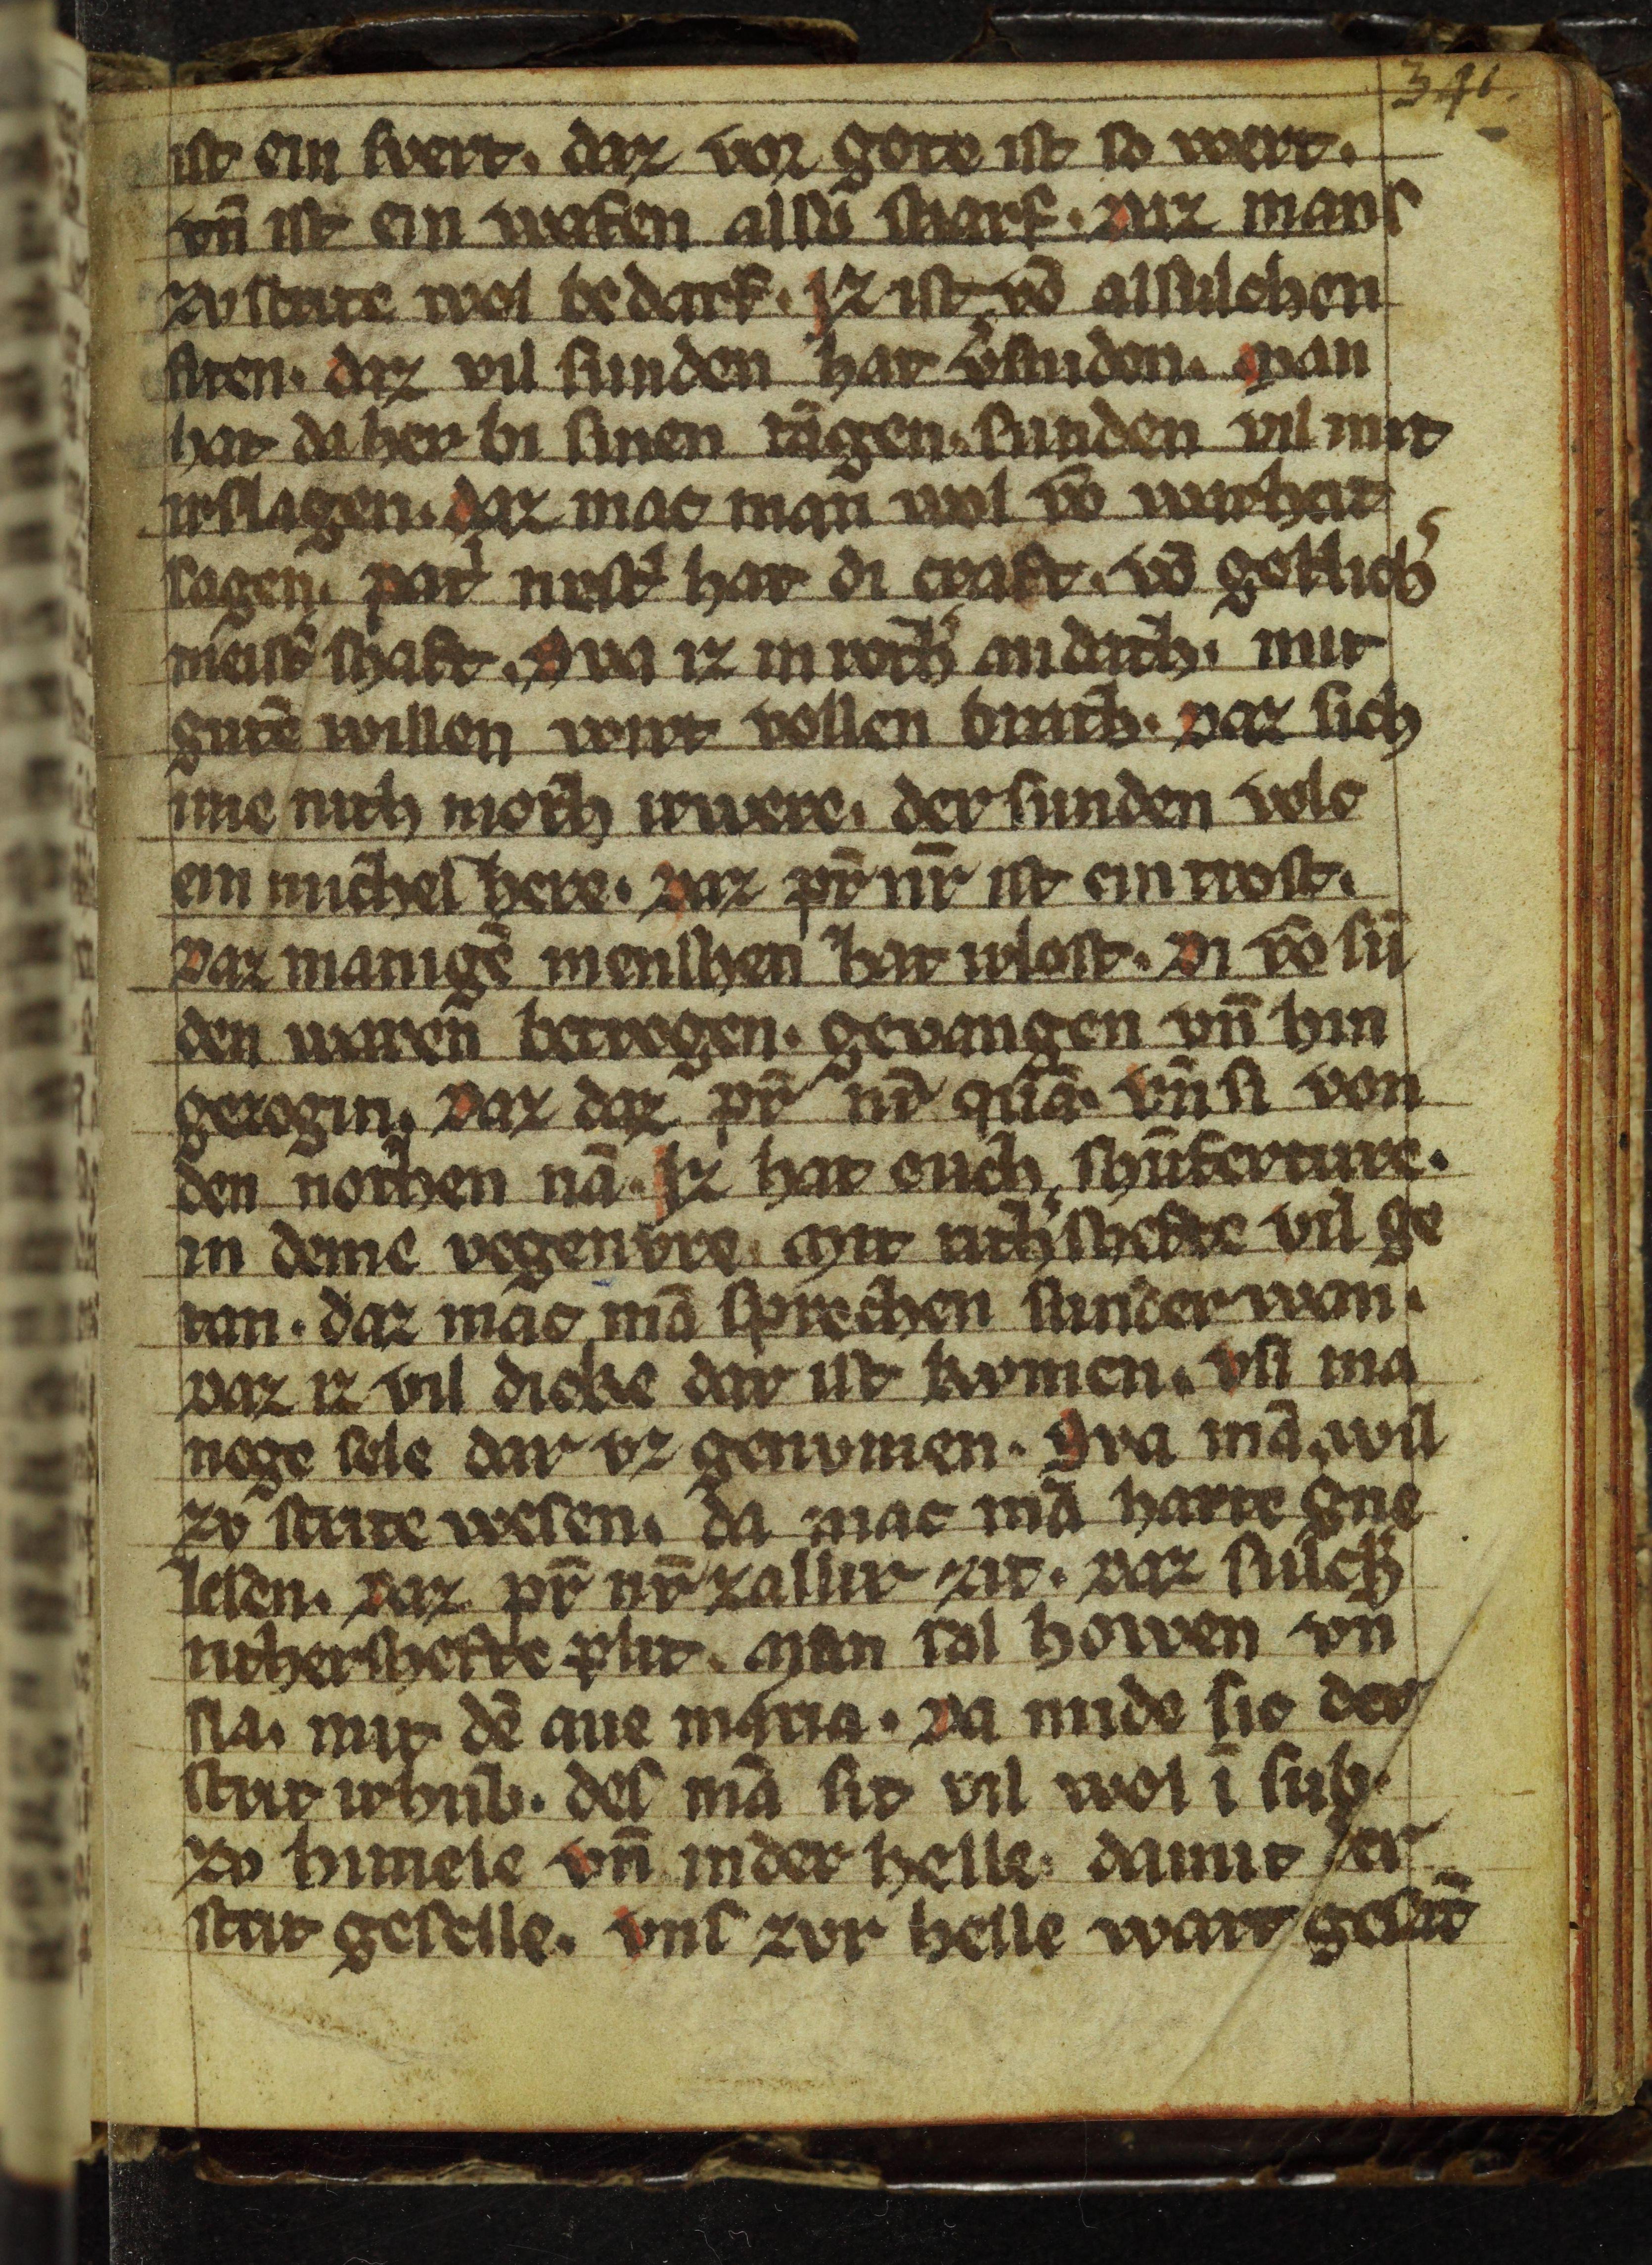 341.
ist ein swert. daz vor gote ist so wert.
vn̄ ist ein wafen alsū scharf. Daz mans
zv strite wol bedarf. Iz ist vō alsulchen
siten. daz vil sunden hat v̓snidon. Man
hat da her bi sinen tāgen. sunden vil mit
irslagen. daz mac man wol vō warheit
sagen. pat̓ nost̓ hat di craft. vō gotlich̓
meist̓ schaft. Swa iz in rech̓ andach. mit
gutē willen wirt vollen brach. Daz sich
nie nich moch irwere. der sunden volc
ein michel here. Daz pr̄ nr̄ ist ein trost.
Daz manigē menschen hat irlost. Di vō sū
den waren betrogen. gevangen vn̄ hin
gezogin. Daz daz pr̄ nr̄ quā. vn̄ si von
den nothen nā. Iz hat ouch schūferture.
in deme vegevvre. Mit rich̓schefte vil ge
tan. daz mac mā sprechen sunder wan.
Daz iz vil dicke dar ist kvmen. vn̄ ma
nege sele dar vz genvmen. Swa mā wil
zv strite wesen. da mac mā harte gne
lesen. Daz pr̄ nr̄ zallir zit. Daz sulch̓
richerschefte plit. Man sal howen vn̄
sla. mit dē aue maria. Da mide sic der
strit irhub. des mā sit vil wol ī sub.
zv himele vn̄ in der helle. damit der
strit geselle. vns zvr helle wart gesūt